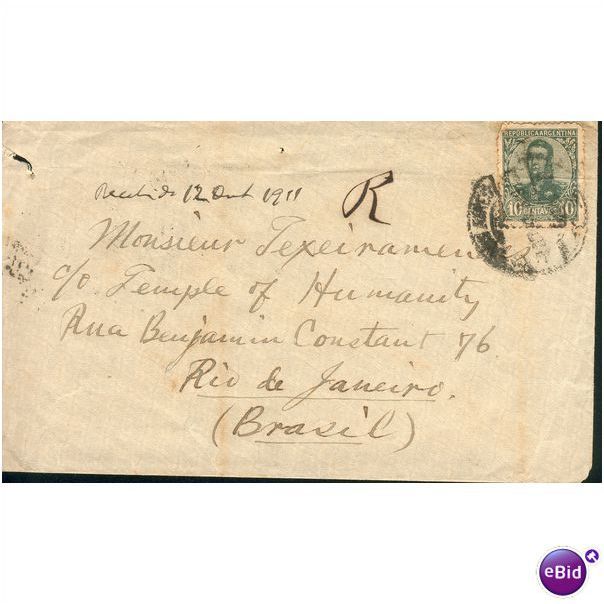 REPUBLICA ARGENTINA
10 CENTAVOS 10
12 Out 1911
R
Monsieur Texeiramen
c/o Temple of Humanity
Rua Benjamin Constant 76
Rio de Janeiro.
(Brasil)
eBid